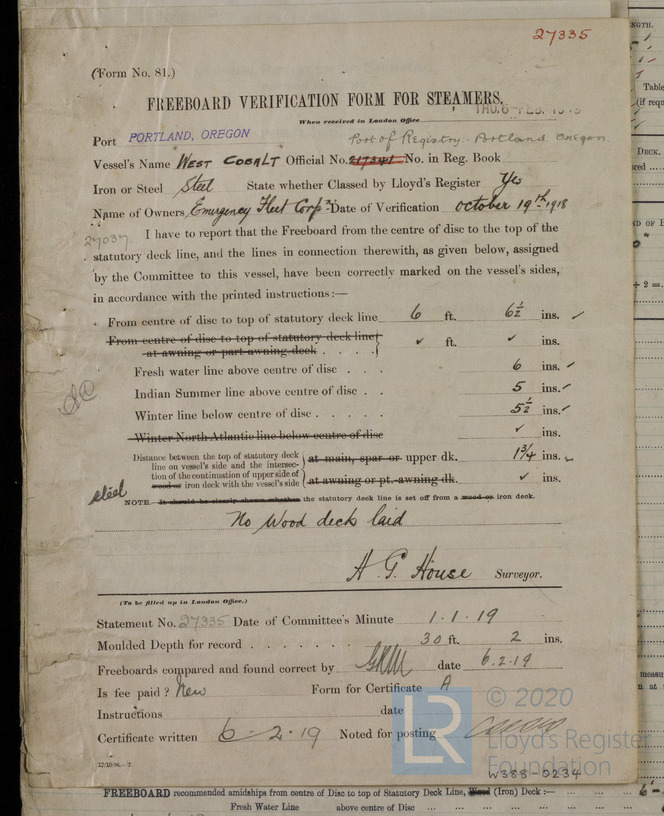 27335
(Form No. 81.)
FREEBOARD VERIFICATION FORM FOR STEAMERS.
THU. 6 - FEB. 1919
When received in London Office
Port PORTLAND, OREGON Port of Registry. Portland Oregon.
Vessel's Name West Cobalt Official No. 217341 No. in Reg. Book
Iron or Steel Steel State whether Classed by Lloyd's Register Yes
Name of Owners Emergency Fleet Corpn Date of Verification October 19th 1918
27037
I have to report that the Freeboard from the centre of disc to the top of the
statutory deck line, and the lines in connection therewith, as given below, assigned
by the Committee to this vessel, have been correctly marked on the vessel's sides,
in accordance with the printed instructions:—
From centre of disc to top of statutory deck line 6 ft. 6½ ins. ✓
From centre of disc to top of statutory deck line at awning or part awning deck . . . . ✓ ft. ✓ ins.
Fresh water line above centre of disc . . . 6 ins. ✓
Indian Summer line above centre of disc . . 5 ins. ✓
Winter line below centre of disc . . . . . 5½ ins. ✓
Winter North Atlantic line below centre of disc ✓ ins.
Distance between the top of statutory deck
line on vessel's side and the intersec- at main, spar or upper dk. 1¾ ins. ✓
tion of the continuation of upper side of
wood or iron deck with the vessel's side at awning or pt. awning dk. ✓ ins.
steel
NOTE. It should be clearly shown whether the statutory deck line is set off from a wood or iron deck.
No Wood deck laid
H. G. House Surveyor.
(To be filled up in London Office.)
Statement No. 27335 Date of Committee's Minute 1.1.19
Moulded Depth for record . . . . . . . 30 ft. 2 ins.
Freeboards compared and found correct by date 6.2.19
Is fee paid? New Form for Certificate A
Instructions date
Certificate written 6-2-19 Noted for posting
12/10/06.—T.
© 2020
LR
Lloyd's Register
Foundation
W388-0234
FREEBOARD recommended amidships from centre of Disc to top of Statutory Deck Line, Wood (Iron) Deck :—
Fresh Water Line above centre of Disc